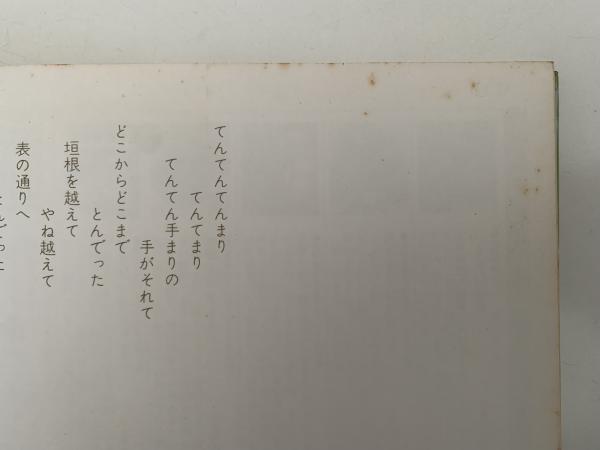 てんてんてんまり
てんてまり
てんてん手まりの
手がそれて
どこからどこまで
とんでった
垣根を越えて
やね越えて
表の通りへ